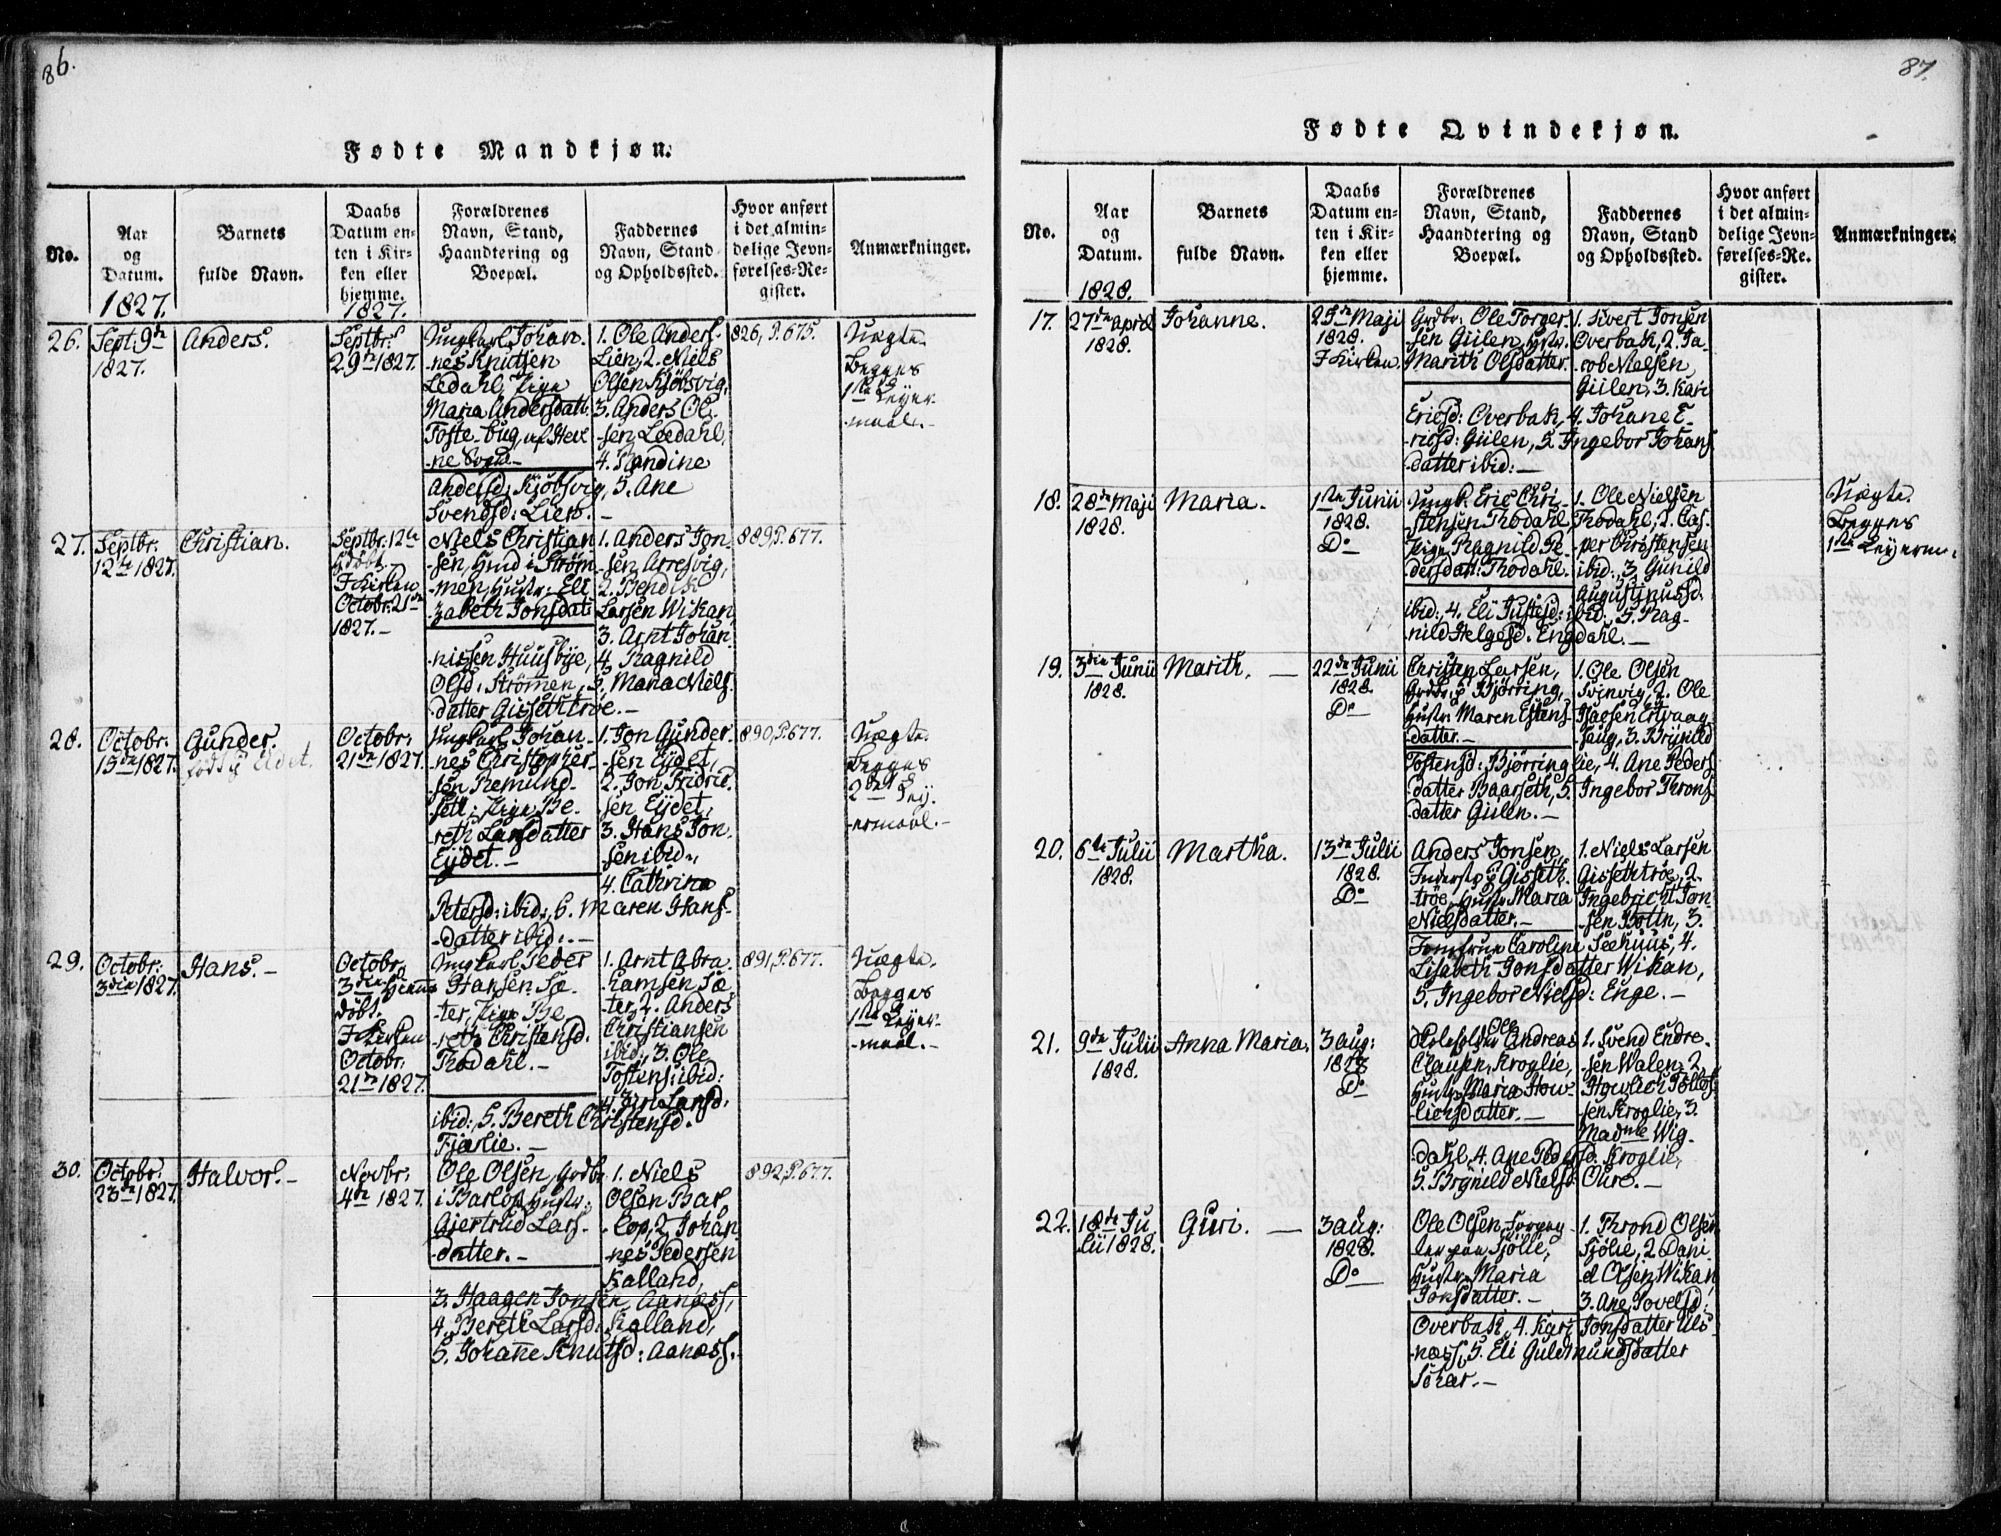 86.
Fødte Mandkjøn.
No.
Aar
og
Datum.
1827.
Barnets
fulde Navn.
Daabs
Datum en-
ten i Kir-
ken eller
hjemme.
1827.
Forældrenes
Navn, Stand,
Haandtering og
Boepæl.
Faddernes
Navn, Stand
og Opholdssted.
Hvor anført
i det almin-
delige Jevn-
førelses-Re-
gister.
Anmærkninger.
26.
Sept: 9de
1827.
Anders.
Septbr:
29de 1827.
Ungkarl Johan-
nes Knutsen
Ledahl, Pige
Maria Andersdatt:
Toste-bug, af Hev-
ne Sogn.-
1. Ole Anders-
Lien, 2. Niels
Olsen Kjöbsvig,
3. Anders Ol-
-sen Leedahl,
4. Randine
Andersd: Kjöbsvig, 5. Ane
Svendsd: Lien. -
826, P. 675.
Uægte.
Begges
1ste Leyer-
-maal.-
27.
Septbr:
12te 1827.
Christian.
Septbr: 12te
hjdöbt.
I Kirken
Octobr: 21de
1827.-
Niels Christian-
sen, Huusm i Ström-
men, Hustr: Eli-
zabeth Jonsdatt:
1. Anders Jon-
-sen Arresvig,
2. Bendik
Larsen Wikan,
3. Arnt Johan-
-nissen Huusbye, 4. Ragnild
Olsd: Strömmen, 5. Maria Niels-
-datter Gissethtröe.-
889, P. 677.
28.
Octobr:
15de 1827.
Gunder.
födt i Eidet.
Octobr:
21de 1827.
Ungkarl Johan-
nes Christopher-
sen Remund-
seth, Pige Be-
reth Larsdatter
Eydet.-
1. Jon Gunder-
-sen Eydet,
2. Jon Fridric-
sen Eydet,
3. Hans Jon-
-sen ibid:,
4. Cathrina
Petersd: ibid:, 5. Maren Hans-
-datter ibid:.-
890, P. 677.
Uægte.
Begges
2det Ley-
-ermaal.-
29.
Octobr:
3die 1827.
Hans.-
Octobr:
3die hiemme
döbt.
I Kirken
Octobr:
21de 1827.
Ungkarl Peder
Hansen Sæ-
-ter, Pige Be-
-reth Christensd.
Thodahl.-
1. Arnt Abra-
hamsen Sæ-
-ter, 2. Anders
Christiansen
ibid:, 3. Ole
Tostens: ibid:
4. Siri Larsd:
ibid:, 5. Bereth Christensd.
Fjærlie.-
891, P. 677.
Uægte.
Begges
1ste Leyer-
-maal.-
30.
Octobr:
23de 1827.
Halvor.-
Novbr:
4de 1827.
Ole Olsen, Grdbr:
i Barlop, Hustr:
Gjertrud Lars-
-datter.-
1. Niels
Olsen Bar-
-lop, 2. Johan-
-nes Pedersen
Kalland,
3. Haagen Jonsen Aanæss,
4. Bereth Larsd: Kalland,
5. Johanne Knutsd: Aanæss.-
892, P. 677.
87.
Fødte Qvindekjøn.
No.
Aar
og
Datum.
1828.
Barnets
fulde Navn.
Daabs
Datum en-
ten i Kir-
ken eller
hjemme.
Forældrenes
Navn, Stand,
Haandtering og
Boepæl.
Faddernes
Navn, Stand
og Opholdssted.
Hvor anført
i det almin-
delige Jevn-
førelses-Re-
gister.
Anmærkninger.
17.
27de april
1828.
Johanne.
25de Maji
1828.
I Kirken.
Grdbr: Ole Torger-
sen Giilen, Hstr:
Marith Olsdatter.
1. Sivert Jonsen
Overbak, 2. Ja-
-cob Nielsen
Giilen, 3. Kari
Ericsd: Overbak, 4. Johane E-
-ricsd: Giilen, 5. Ingebor Johans-
-datter ibid:-
18.
28de Maji
1828.
Maria.
1ste Junii
1828.
Do
Ungk. Eric Chri-
stensen Thodahl
Pige Ragnild Pe-
dersdatt: Thodahl.
1. Ole Nielsen
Thodahl, 2. Cas-
-per Christensen
ibid:, 3. Gunild
Augustinussd:
ibid:, 4. Eli Justesd: ibid:, 5. Rag-
nild Helgesd. Engdahl.-
Uægte.
Begges
1ste Leyerm:
19.
3die Junii
1828.
Marith. -
22de Junii
1828.
Do
Christen Larsen,
Grdbr: i Bjørring,
Hustr: Maren Estens-
-datter.-
1. Ole Olsen
Svinvig, 2. Ole
Isacsen Ertvaag-
-saug, 3. Brynild
Tostensd: Bjørringlie, 4. Ane Peders-
datter Baarseth, 5. Ingebor Throns-
-datter Giilen.-
20.
6te Julii
1828.
Martha.
13de Julii
1828.
Do
Anders Jonsen,
Inderst i Gisseth-
tröe, Hustr: Maria
Nielsdatter.-
1. Niels Larsen
Gissethtröe, 2.
Ingebrict Jon-
-sen Botn, 3.
Jomfrue Caroline Seehuus, 4.
Lisabeth Jonsdatter Wikan,
5. Ingebor Nielsd: Enge.-
21.
9de Julii
1828.
Anna Maria.
3 aug:
1828
Do
Ole Andreas
Clausen, Kroglie,
Hustr: Maria How-
-lichsdatter.-
1. Svend Endre-
-sen Walen, 2.
Howlich Tolles-
sen Kroglie, 3.
Madme Wig-
dahl, 4. Ane Pedersd. Kroglie,
5. Brynild Nielsd: Oure.-
22.
18de Ju-
lii 1828.
Guri. -
3 aug:
1828.
Do
Ole Olsen, Forpag-
ter paa Fjölie,
Hustr: Maria
Jonsdatter.-
1. Thrond Olsen
Fjölie, 2. Dani-
-el Olsen Wikan,
3. Ane Jovelsd:
Overbak, 4. Kari Jonsdatter Uls-
-næss, 5. Eli Guldmundsdatter